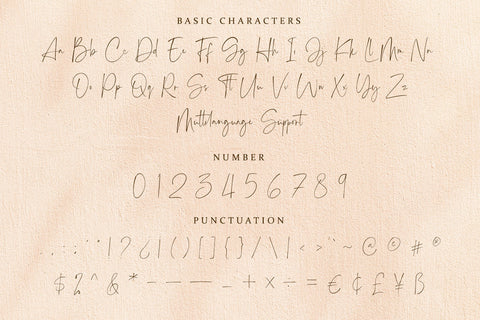 BASIC CHARACTERS
Aa Bb Cc Dd Ee Ff Gg Hh Ii Jj Kk Ll Mm Nn
Oo Pp Qq Rr Ss Tt Uu Vv Ww Xx Yy Zz
Multilanguage Support
NUMBER
0 1 2 3 4 5 6 7 8 9
PUNCTUATION
. , : ; " ' ! ? ¿ ¡ ( ) [ ] { } / \ | < > ` ~ @ © # ®
$ % ^ & * - – — _ + × ÷ = € ¢ £ ¥ ß